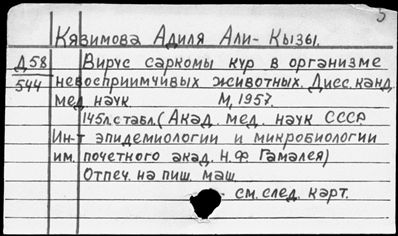 5
Кязимова Адиля Али-Кызы.
Д58 Вирус саркомы кур в организме
544 невосприимчивых животных. Дисс. канд.
мед. наук. М., 1957.
145л. стабл. (Акад. мед. наук СССР.
Ин-т эпидемиологии и микробиологии
им. почетного акад. Н.Ф. Гамалея)
Отпеч. на пиш. маш.
- см. след. карт.